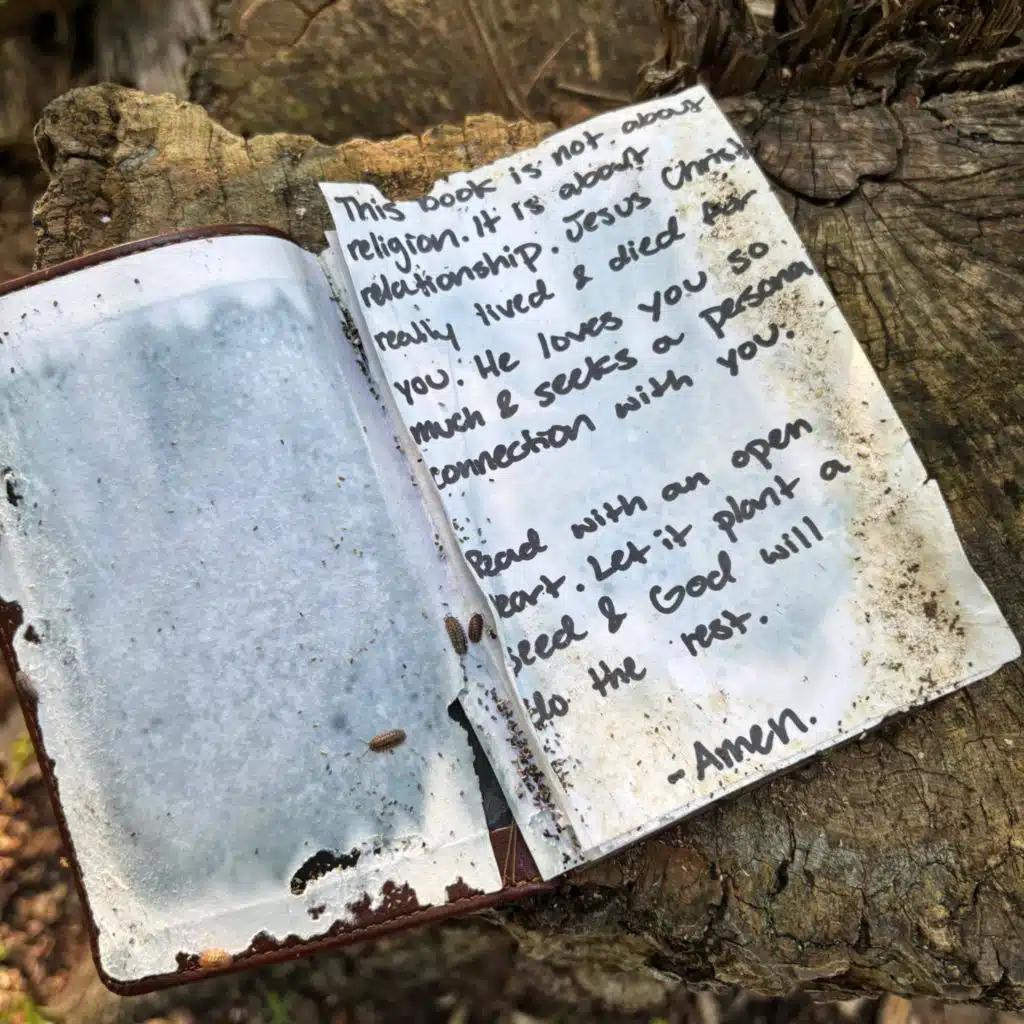 This book is not about
religion. It is about
relationship. Jesus Christ
really lived & died for
you. He loves you so
much & seeks a persona
connection with you.
Read with an open
eart. Let it plant a
seed & God will
do the rest.
- Amen.